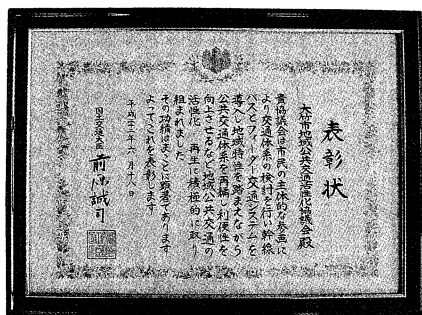 表彰状
大竹市地域公共交通活性化協議会殿
貴協議会は市民の主体的な参画に
より交通体系の検討を行い幹線
バスとフィーダー交通システムを
導入し地域特性を踏まえながら
公共交通体系を再編し利便性を
向上させるなど地域公共交通の
活性化・再生に積極的に取り
組まれました
その功績はまことに顕著であります
よってこれを表彰します
平成二十二年一月十八日
国土交通大臣 前原誠司